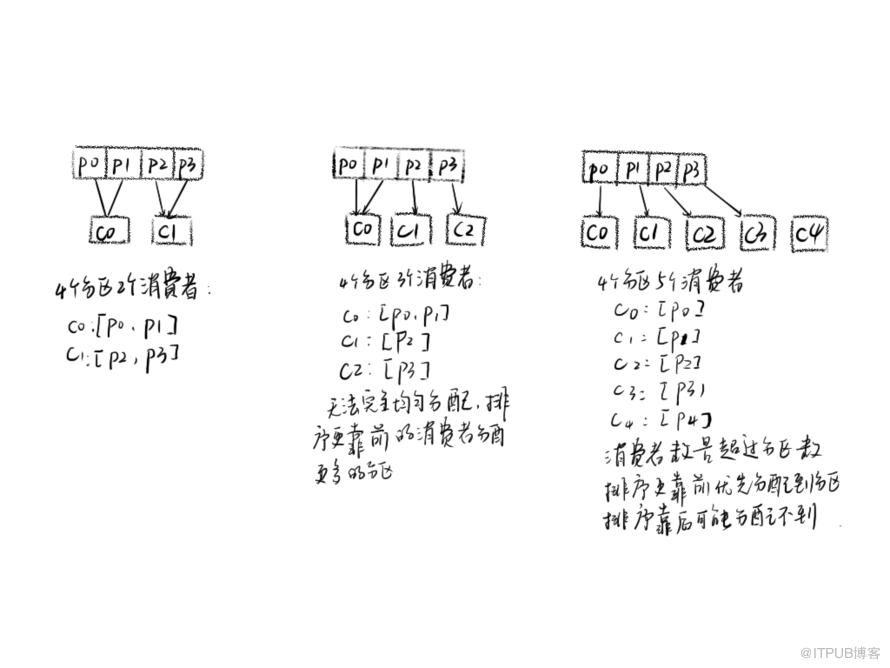 p0 p1 p2 p3
C0 C1
4个分区2个消费者:
C0:[p0, p1]
C1:[p2, p3]
p0 p1 p2 p3
C0 C1 C2
4个分区3个消费者:
C0:[p0, p1]
C1:[P2]
C2:[P3]
无法完全均匀分配,排
序更靠前的消费者分配
更多的分区
p0 p1 p2 p3
C0 C1 C2 C3 C4
4个分区5个消费者
C0:[p0]
C1:[p1]
C2:[p2]
C3:[p3)
C4:[p4]
消费者数量超过分区数
排序更靠前优先分配到分区
排序靠后可能分配不到
@ITPUB博客